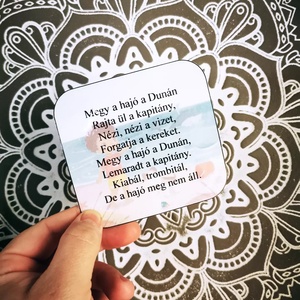 Megy a hajó a Dunán
Rajta ül a kapitány,
Nézi, nézi a vizet,
Forgatja a kereket.
Megy a hajó a Dunán,
Lemaradt a kapitány.
Kiabál, trombitál,
De a hajó meg nem áll.